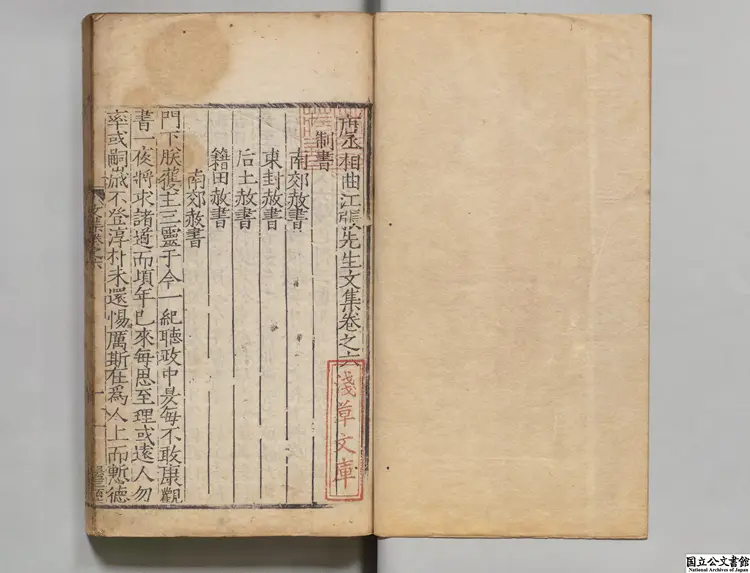 唐丞相曲江張先生文集卷之六
制書
南郊赦書
東封赦書
后土赦書
籍田赦書
南郊赦書
門下朕獲主三靈于今一紀聽政中昃每不敢康觀
書一夜將求諸道而頃年已來每思至理或遠人勿
率或嗣歲不登淳朴未還惕厲斯在為人上而慙德
文集卷之六
淺草文庫
国立公文書館
National Archives of Japan